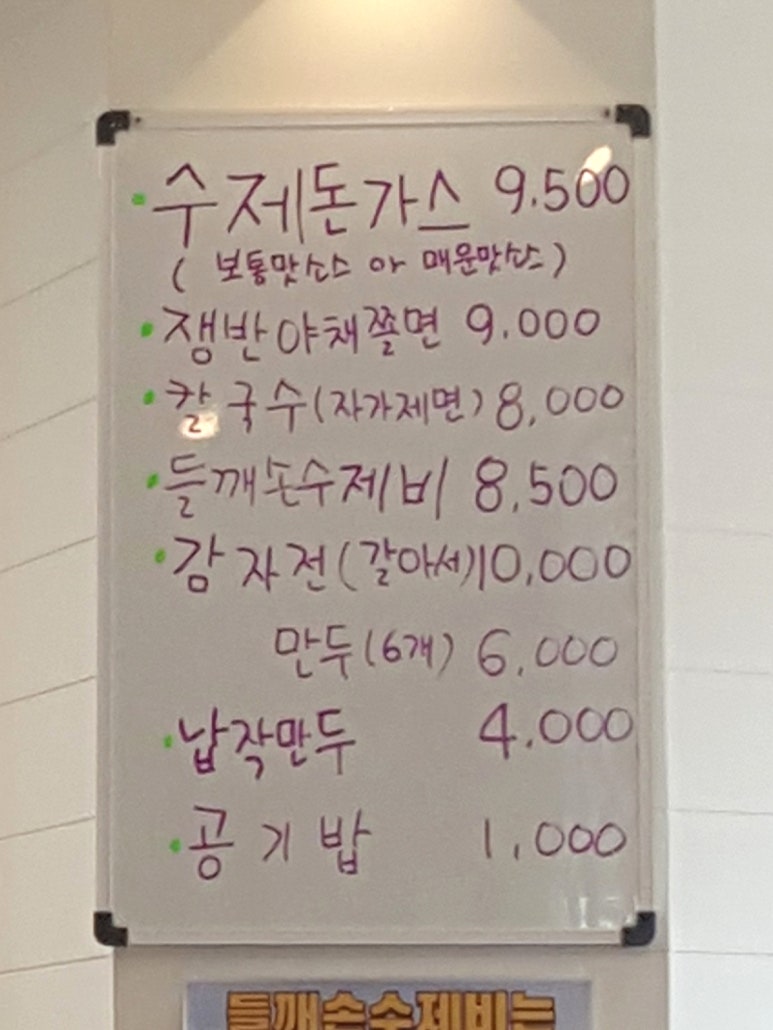 · 수제돈가스 9.500
( 보통맛소스 or 매운맛소스 )
· 쟁반야채쫄면 9.000
· 칼국수(자가제면) 8,000
· 들깨손수제비 8,500
· 감자전(갈아서)10,000
만두(6개) 6,000
· 납작만두 4.000
· 공기밥 1,000
들깨손수제비는